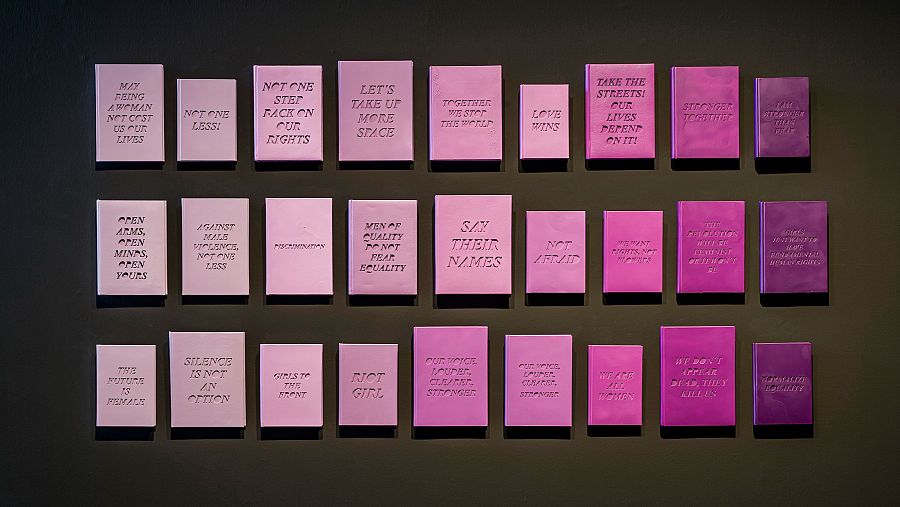 MAY
BEING
A WOMAN
NOT COST
US OUR
LIVES
NOT ONE
LESS!
NOT ONE
STEP
BACK ON
OUR
RIGHTS
LET'S
TAKE UP
MORE
SPACE
TOGETHER
WE STOP
THE WORLD
LOVE
WINS
TAKE THE
STREETS!
OUR
LIVES
DEPEND
ON IT!
STRONGER
TOGETHER
I AM
STRONGER
THAN
FEAR
OPEN
ARMS,
OPEN
MINDS,
OPEN
YOURS
AGAINST
MALE
VIOLENCE,
NOT ONE
LESS
DISCRIMINATION
MEN OF
QUALITY
DO NOT
FEAR
EQUALITY
SAY
THEIR
NAMES
NOT
AFRAID
WE WANT
RIGHTS, NOT
FLOWERS
THE
REVOLUTION
WILL BE
FEMINIST
OR IT WON'T
BE
GIRLS
JUST WANT TO
HAVE
FUNDAMENTAL
HUMAN RIGHTS
THE
FUTURE
IS
FEMALE
SILENCE
IS NOT
AN
OPTION
GIRLS TO
THE
FRONT
RIOT
GIRL
OUR VOICE,
LOUDER,
CLEARER,
STRONGER
OUR VOICE,
LOUDER,
CLEARER,
STRONGER
WE ARE
ALL
WOMEN
WE DON'T
APPEAR
DEAD, THEY
KILL US
NORMALIZE
EQUALITY